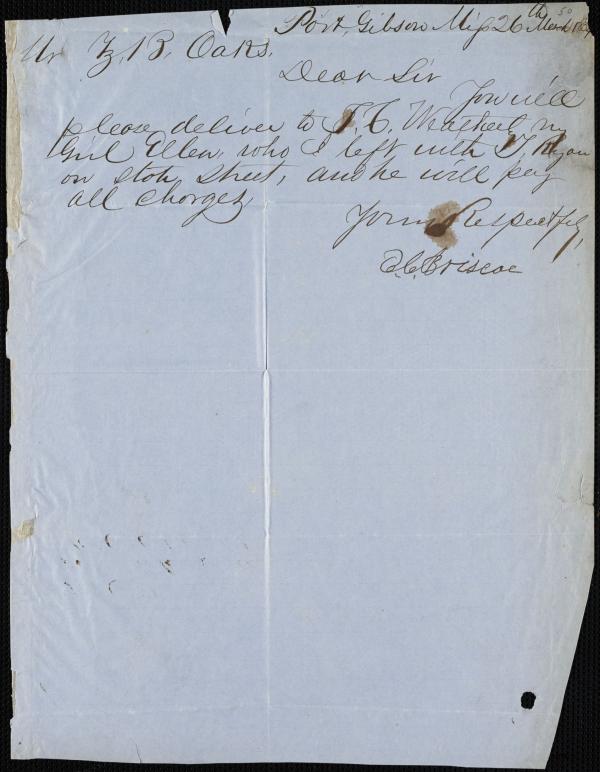 Port, Gibson Miss 26th March
Mr Z. B. Oakes,
Dear Sir
You will
please deliver to T. C. Weatherly my
Girl Ellen, who I left with T. Ryan
on State Street, and he will pay
all charges
Yours Respectfly,
E. C. Briscoe